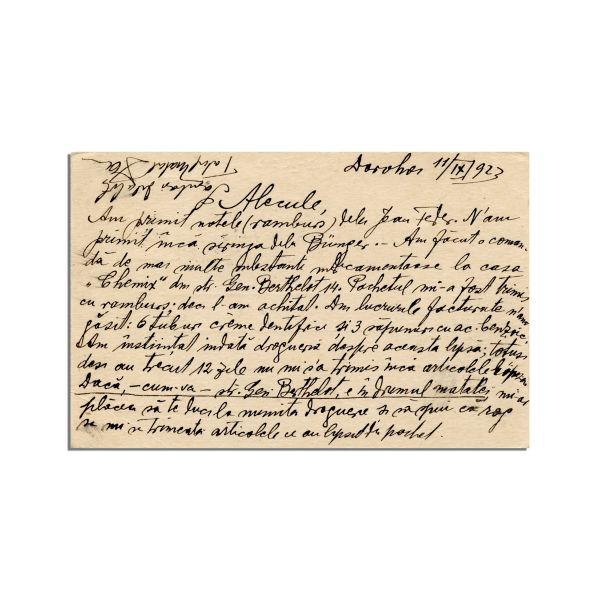 Dorohoi 11/IX/923
Alecule,
Am primit notele (ramburs) dela Jean Feder. N'am
primit încă seringa dela Bünger. - Am făcut o coman-
dă de mai multe substanțe medicamentoase la casa
"Chemix" din str. Gen. Berthelot 14. Pachetul mi-a fost trimis
cu ramburs; deci l-am achitat. Din lucrurile facturate n'am
găsit: 6 tuburi crème dentifrice și 3 săpunuri cu ac. benzoic.
Am înștiințat îndată drogueria despre aceasta lipsă; totuș
deși au trecut 12 zile nu mi s'a trimes încă articolele lipsă.
Dacă - cum-va - str. Gen. Berthelot, e în drumul matale, mi-ar
plăcea să te duci la numita droguerie și să spui că rog
să mi se trimeată articolele ce au lipsit din pachet.